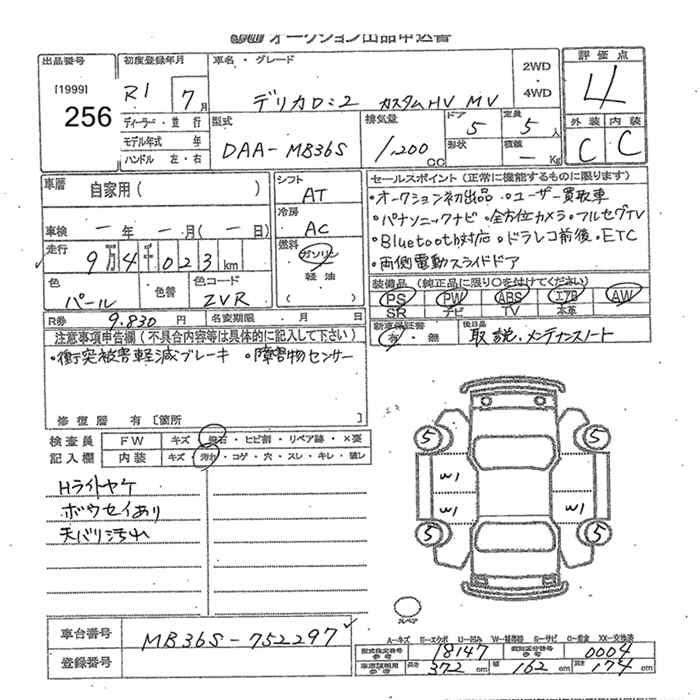 オークション出品申込書
出品番号
[1999]
256
初度登録年月
R1 7月
ディーラー・並行
モデル年式 年
ハンドル 左・右
車名・グレード
デリカD:2 カスタムHV MV
2WD・4WD
型式
DAA-MB36S
排気量
1,200cc
ドア 5
形状
定員 5人
積載 ー Kg
評価点
4
外装 内装
C C
車歴 自家用( )
車検 ー年 ー月(ー日)
走行 9万4千023km
色 パール
色替
色コード ZVR
シフト AT
冷房 AC
燃料 ガソリン
軽油
( )
R券 9,830円
名変期限 月 日
セールスポイント(正常に機能するものに限ります)
・オークション初出品 ・ユーザー買取車
・パナソニックナビ ・全方位カメラ ・フルセグTV
・Bluetooth対応 ・ドラレコ前後 ・ETC
・両側電動スライドドア
装備品(純正品に限り○を付けてください)
PS PW ABS エアB AW
SR ナビ TV 本革
新車保証書
有・無
後日品
取説、メンテナンスノート
注意事項申告欄(不具合内容等は具体的に記入して下さい)
・衝突被害軽減ブレーキ ・障害物センサー
修復歴 有 [箇所 ]
検査員 FW キズ・飛石・ヒビ割・リペア跡・×要
記入欄 内装 キズ・汚れ・コゲ・穴・スレ・キレ・破レ
Hライトヤケ
ボウセイあり
天バリ汚れ
5 5
W1 W1
W1 W1
5 5
スペア
車台番号 MB36S-752297
登録番号
A-キズ E-エクボ U-凹み W-補修跡 S-サビ C-腐食 XX-交換済
型式指定番号 参考 18147
類別区分番号 参考 0004
車庫証明用 参考 長さ 372cm 幅 162cm 高さ 174cm